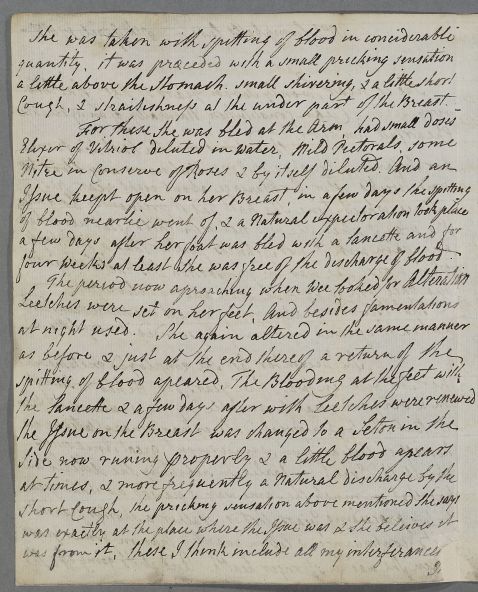 She was taken with spitting of blood in conciderable
quantity, it was præceded with a small pricking sensation
a little above the Stomach. small shivering, & a little short
Cough, & straitishness at the under part of the Breast.
For these she was bled at the Arm, had small doses
Elixer of Vitriol diluted in water, Mild Pectorals, some
Nitre in Conserve of Roses & by it self diluted. And an
Issue keept open on her Breast, in a few days the spitting
of blood nearlie went of, & a Natural expectoration took place
a few days after her foot was bled with a lancette and for
four weeks at least she was free of the discharge of blood
The period now aproaching when we looked for Alteration
Leetches were set on her feet, And besides fomentations
at night used. She again altered in the same manner
as before & just at the end thereof a return of the
spitting of blood apeared, The Blooding at the feet with
the lancette & a few days after with Leetches were renewed
the Issue on the Breast was changed to a Seton in the
Side now runing properly & a little blood apears
at times, & more frequently a Natural discharge by the
short Cough, the pricking sensation above mentioned she says
was exactly at the place where the Issue was & she beleives it
was from it, these I think include all my interferances